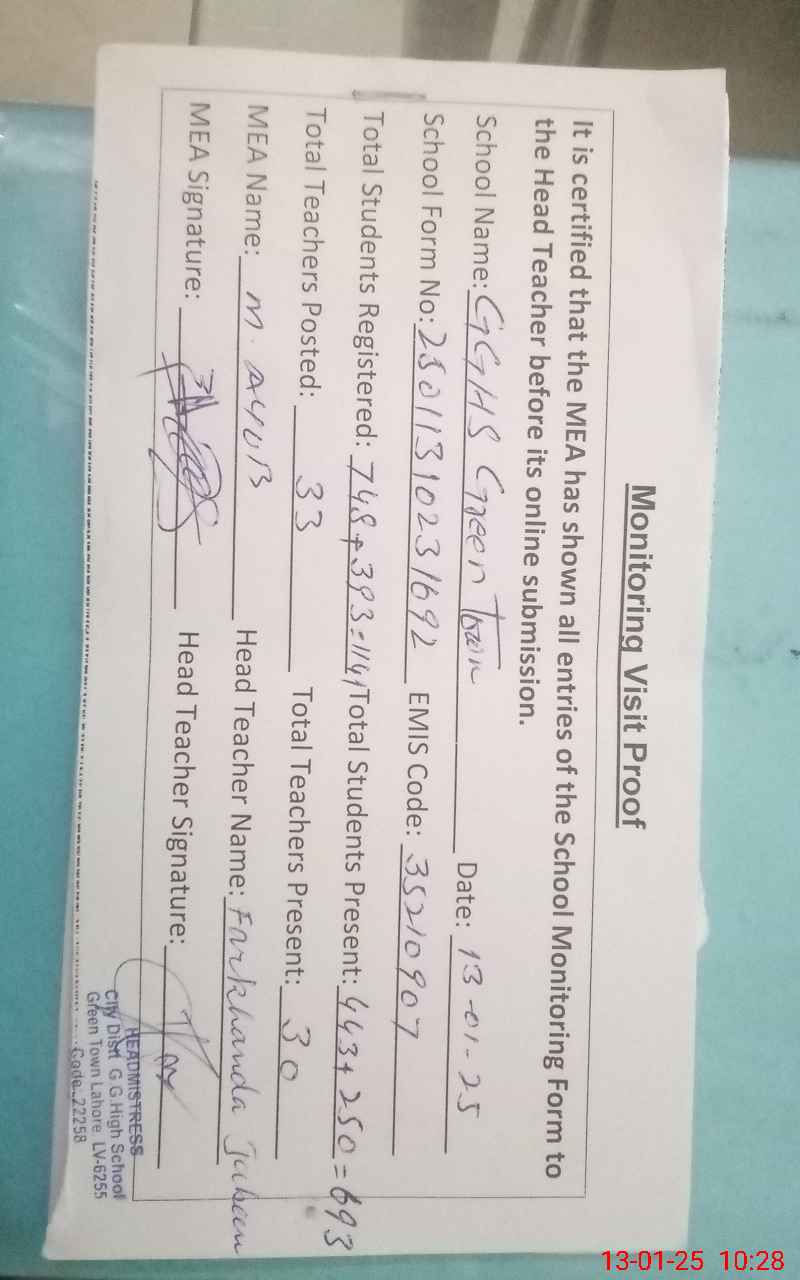 Monitoring Visit Proof
It is certified that the MEA has shown all entries of the School Monitoring Form to
the Head Teacher before its online submission.
School Name: GGHS Green Town Date: 13-01-25
School Form No: 25011310231692 EMIS Code: 35210907
Total Students Registered: 748+393=1141 Total Students Present: 443+250=693
Total Teachers Posted: 33 Total Teachers Present: 30
MEA Name: M. AYUB Head Teacher Name: Farkhanda Jabeen
MEA Signature: Head Teacher Signature:
HEADMISTRESS
City Distt. G.G.High School
Green Town Lahore. LV-6255
Code-22258
13-01-25 10:28